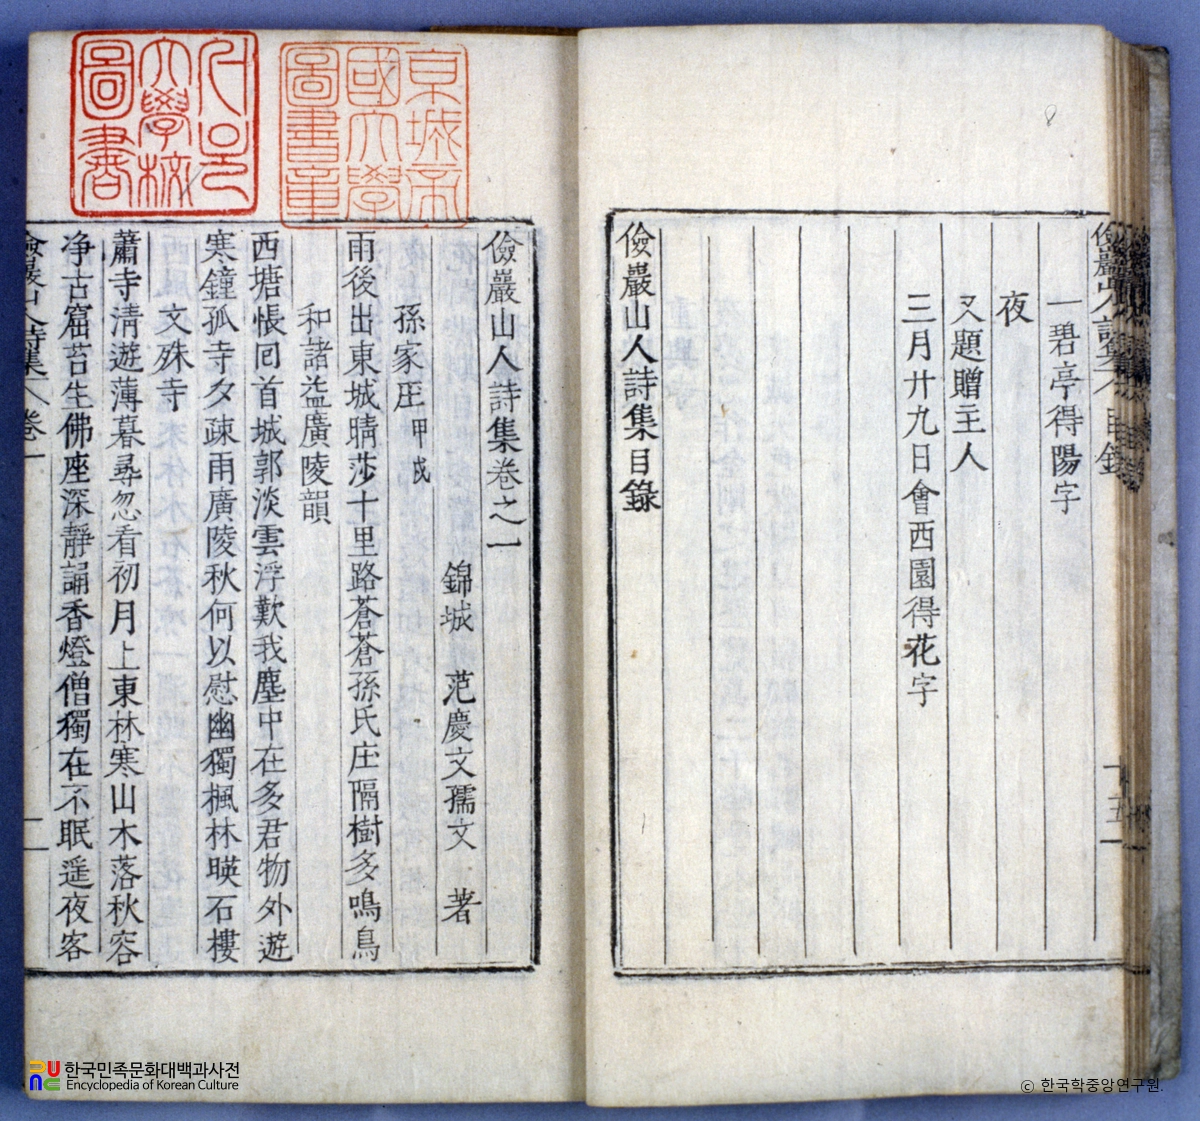 儉巖山人詩集 目錄
一碧亭得陽字
夜
又題贈主人
三月廿九日會西園得花字
儉巖山人詩集目錄
十五
儉巖山人詩集卷之一
錦城 范慶文孺文 著
孫家庄 甲戌
雨後出東城晴莎十里路蒼蒼孫氏庄隔樹多鳴鳥
和諸益廣陵韻
西塘悵回首城郭淡雲浮歎我塵中在多君物外遊
寒鐘孤寺夕疎雨廣陵秋何以慰幽獨楓林暎石樓
文殊寺
蕭寺清遊薄暮尋忽看初月上東林寒山木落秋容
净古窟苔生佛座深靜誦香燈僧獨在不眠遥夜客
儉巖山人詩集 卷一
一
京城帝
國大學
圖書章
大學校
圖書
8
한국민족문화대백과사전
Encyclopedia of Korean Culture
© 한국학중앙연구원.